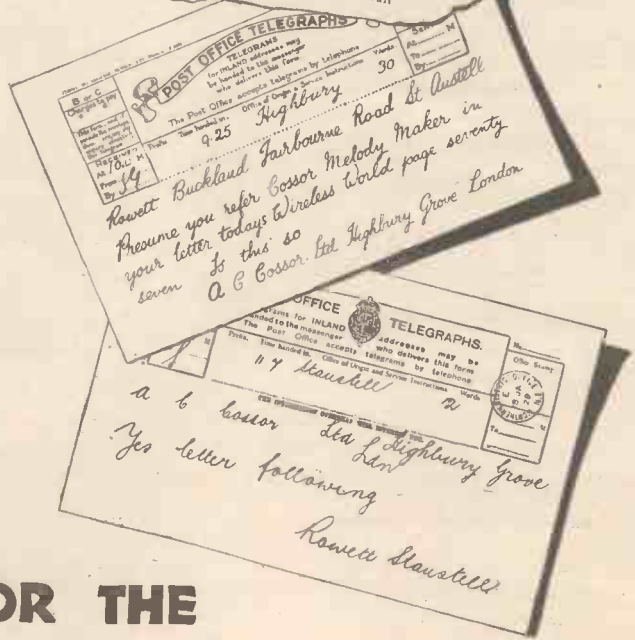 POST OFFICE TELEGRAPHS
TELEGRAMS
for INLAND addresses may
be handed to the messenger
who delivers this form
The Post Office accepts telegrams by telephone
B or C
Charges to pay
Prefix Time handed in. Office of Origin & Service Instructions Words
9.25 Highbury 30
At M
To
By
Received
At M
From
By
Rowett Buckland Fairbourne Road St Austell
Presume you refer Cossor Melody Maker in
your letter todays Wireless World page seventy
seven Is this so
A C Cossor. Ltd Highbury Grove London
OFFICE TELEGRAPHS.
grams for INLAND addresses may be
handed to the messenger who delivers this form
The Post Office accepts telegrams by telephone
No.
Office Stamp
Prefix. Time handed in. Office of Origin and Service Instructions Words
11 4 Staustell 12
M
To
By
A C Cossor Ltd Highbury Grove
Ldn
Yes letter following
Rowett Staustell
OR THE